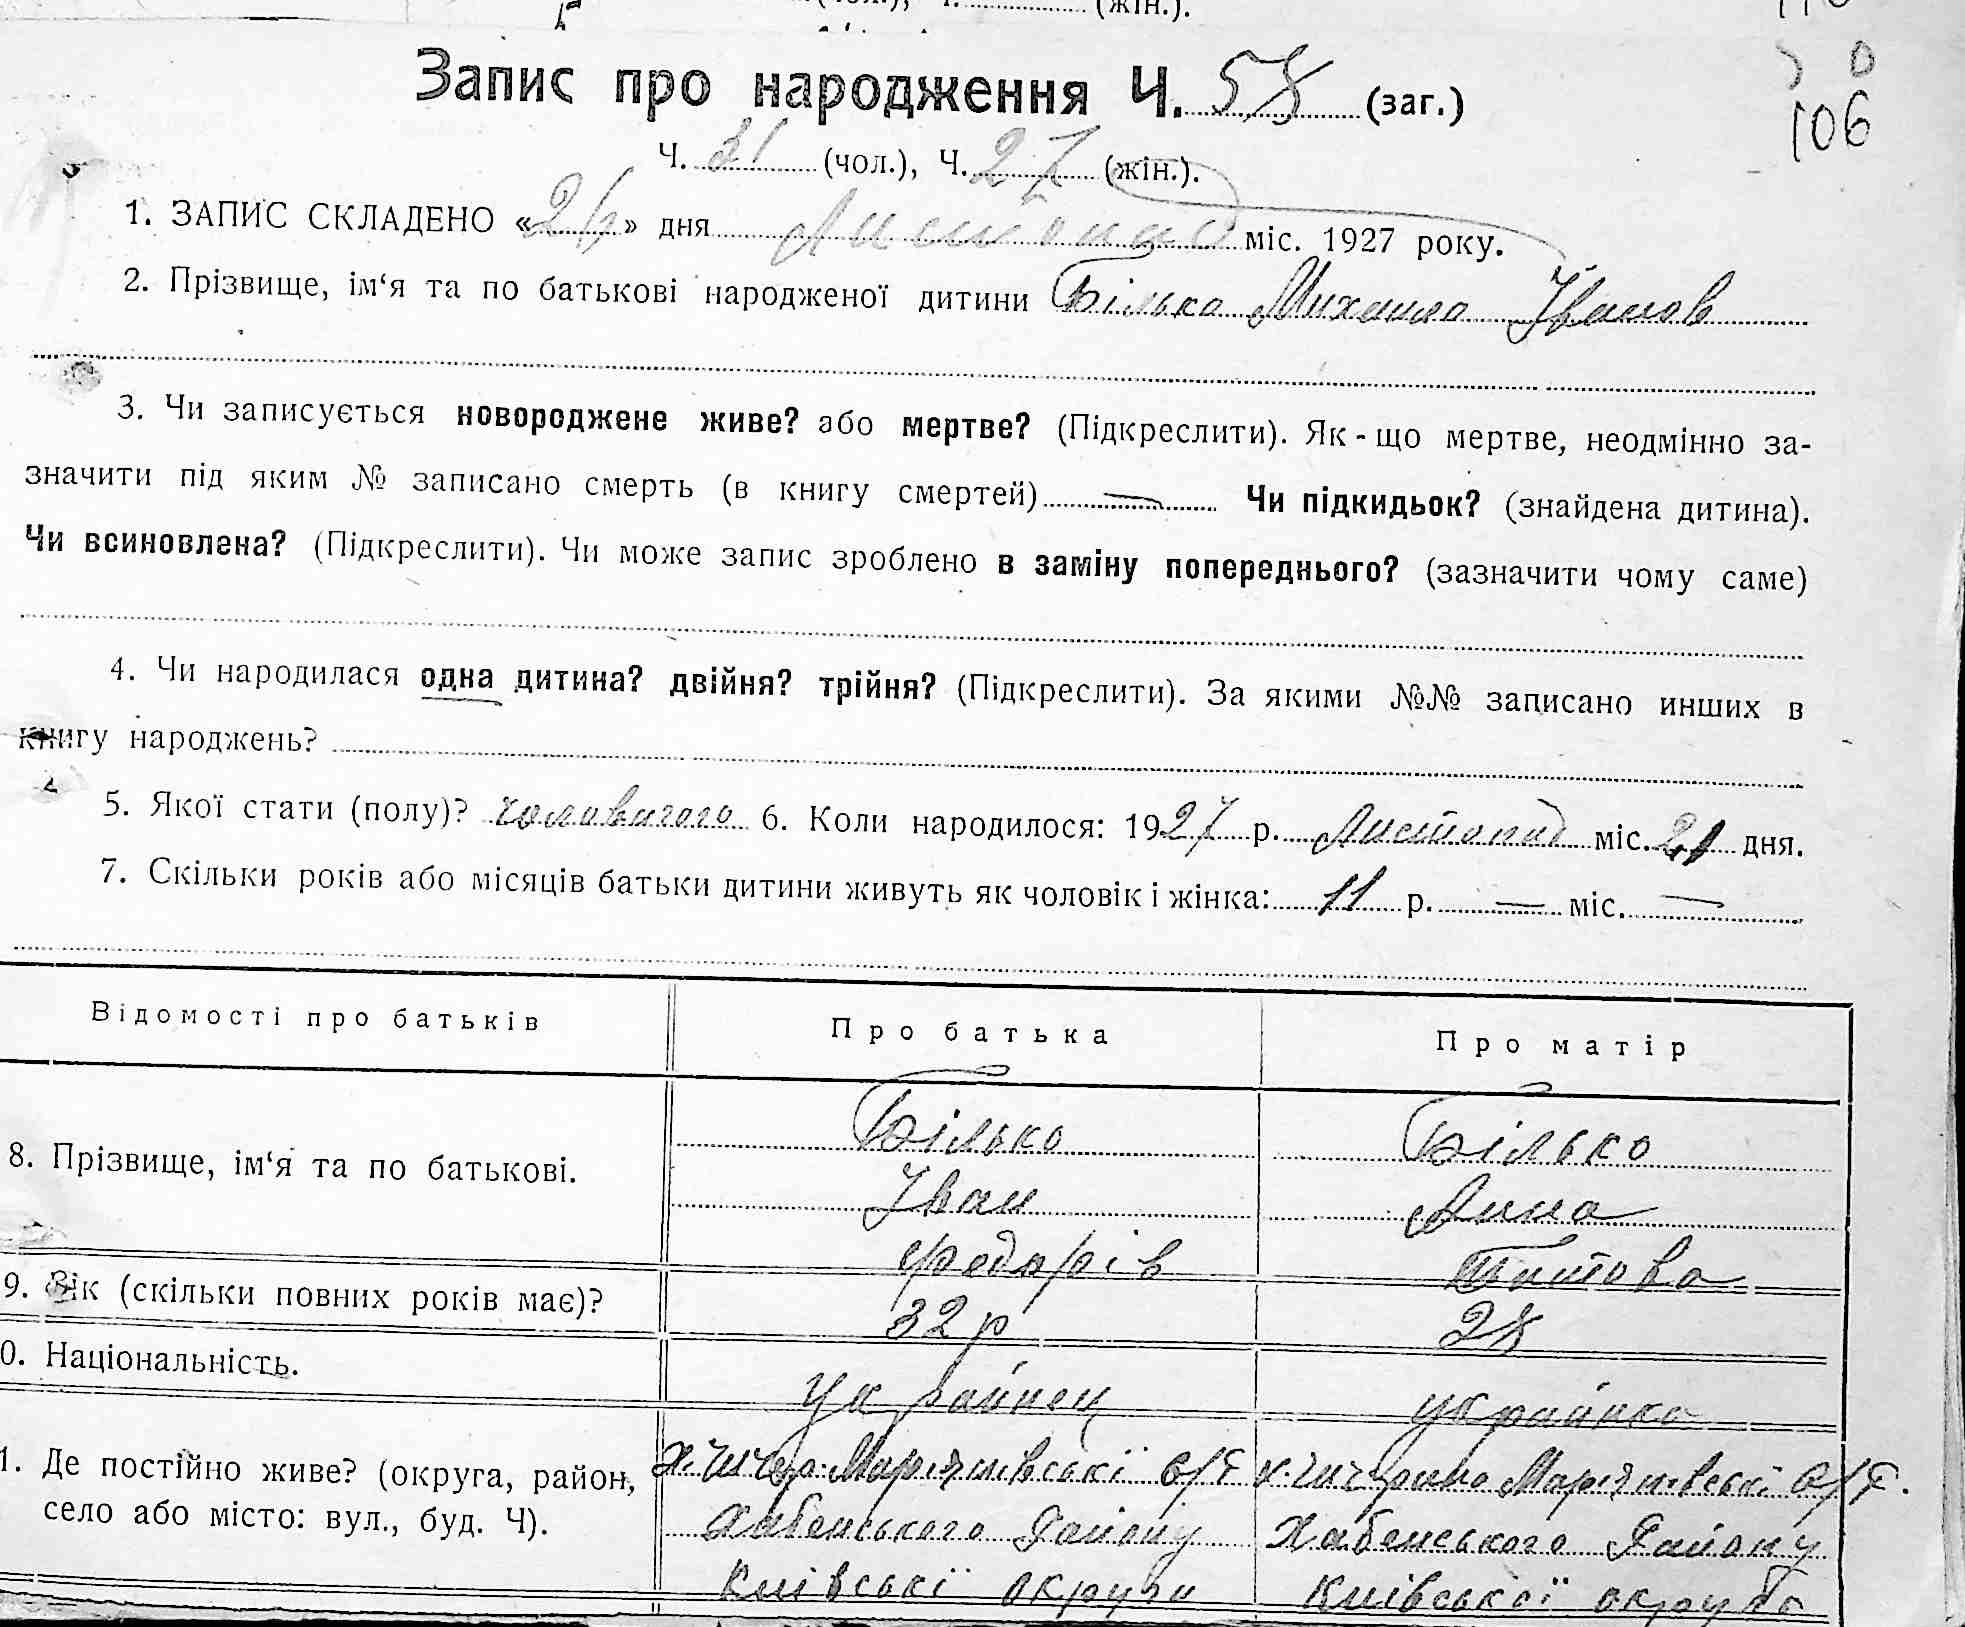 (чол.), Ч. (жін.).
Запис про народження Ч. 58 (заг.)
106
Ч. 31 (чол.), Ч. 27 (жін.).
1. ЗАПИС СКЛАДЕНО «26» дня Листопад міс. 1927 року.
2. Прізвище, ім‘я та по батькові народженої дитини Білько Михаило Іванов
3. Чи записується новороджене живе? або мертве? (Підкреслити). Як-що мертве, неодмінно за-
значити під яким № записано смерть (в книгу смертей) — Чи підкидьок? (знайдена дитина).
Чи всиновлена? (Підкреслити). Чи може запис зроблено в заміну попереднього? (зазначити чому саме)
4. Чи народилася одна дитина? двійня? трійня? (Підкреслити). За якими №№ записано инших в
книгу народжень?
5. Якої стати (полу)? чоловичого 6. Коли народилося: 1927 р. Листопад міс. 21 дня.
7. Скільки років або місяців батьки дитини живуть як чоловік і жінка: 11 р. — міс. —
Відомості про батьків Про батька Про матір
8. Прізвище, ім‘я та по батькові.
Білько Білько
Іван Анна
Федорів Титова
9. Вік (скільки повних років має)? 32 р 28
0. Національність. Украйнец украйнка
1. Де постійно живе? (округа, район,
село або місто: вул., буд. Ч).
Х. Чичер. Мар'янівські с/г х. Чичерино Мар'янівські с/г.
Хабенського Району Хабенського Району
Київські округи Київської округо